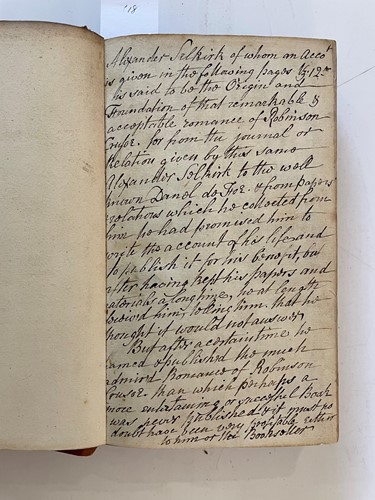 '18
Alexander Selkirk of whom an Acco^t
is given in the following pages
his said to be the Origin and
Foundation of that remarkable &
acceptable romance of Robinson
Crusoe. for from the journal or
Relation given by this same
Alexander Selkirk to the well
known Daniel de Foe & from papers
& relations which he collected from
him he had promised him to
write the account of his life and
to publish it for his benefit, but
after having kept his papers and
materials a long time, he at length
deceiv'd him, telling him that he
thought it would not answer,
But after a certain time he
& published the much
admir'd Romance of Robinson
Crusoe. than which perhaps a
more entertaining or successful Book
was never published & it must no
doubt have been very profitable either
to him or his Bookseller